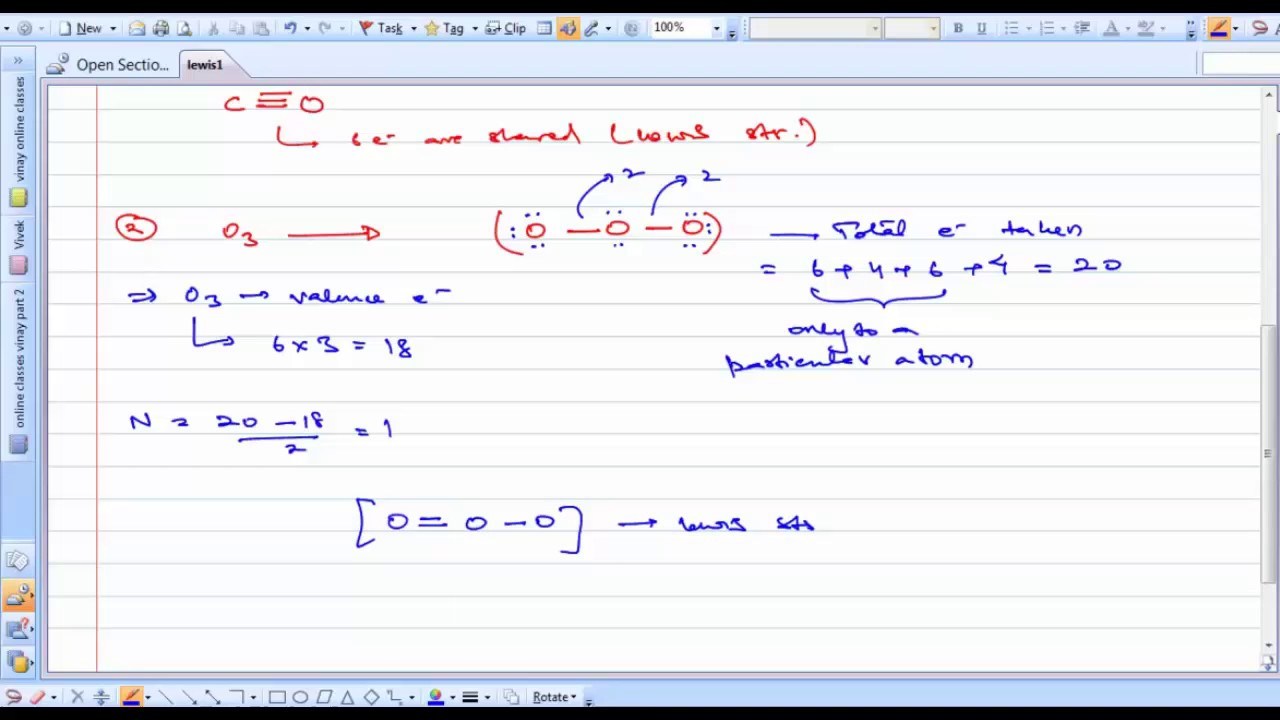 New Task Tag Clip 100% B U A ab A
Open Sectio... lewis1
vinay online classes
Vivek
online classes vinay part 2
C ≡ O
↳ 6 e⁻ are shared (Lewis str.)
2 2
② O₃ ⟶ (:O — O — O:) ⟶ Total e⁻ taken
= 6 + 4 + 6 + 4 = 20
⇒ O₃ → valence e⁻
↳ 6 × 3 = 18
only to a
particular atom
N = 20 – 18 / 2 = 1
[O = O – O] ⟶ Lewis str
Rotate